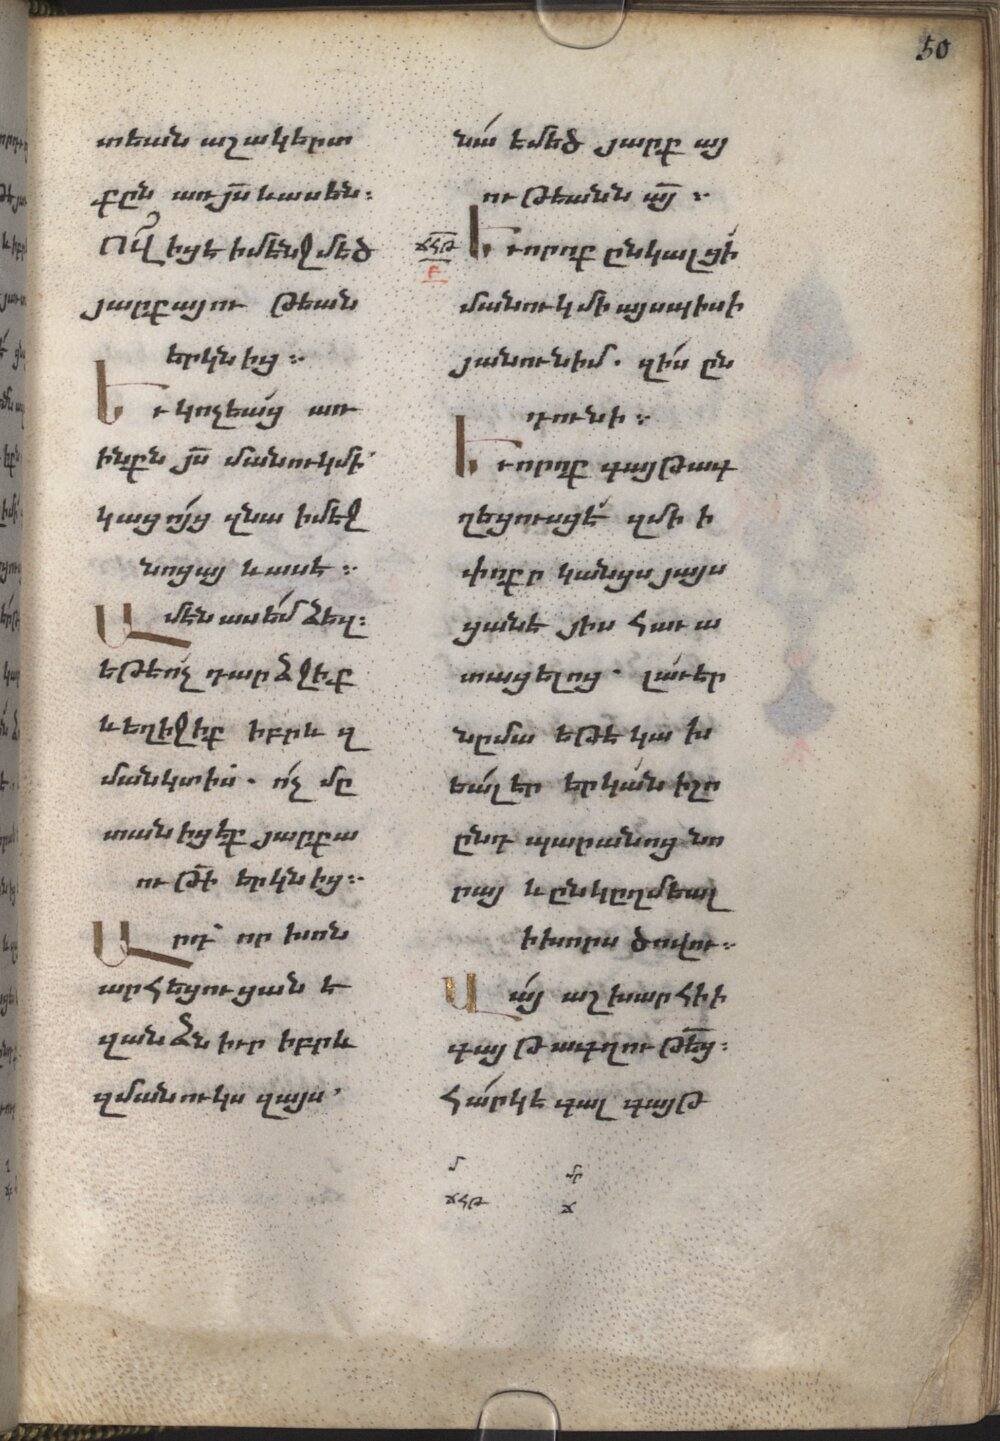 50
տեան աշակերտ
քըն առ յս̅ և ասեն:
Ո՞վ իցէ ի մէնջ մեծ
յարքայու թեան
երկնից :
Եւ կոչեա́ց առ
ինքն յս̅ մանուկ մի՝
կացո́յց զնա ի մէջ
նոցայ և ասէ :
Ամէն ասե́մ ձեզ:
եթէ ո́չ դարձջիք
և եղիջիք իբրև զ
մանկտիս · ո́չ մը
տանիցէք յարքա
ու թի̅ երկնից:
Արդ՝ որ խոն
արհեցուցանէ
զանձն իւր իբրև
զմանուկս զայս՝
նա́ է մեծ յարք այ
ու թեանն ա̅յ :
ՃՀԹ
Բ
Եւ որոք ընկալցի́
մանուկ մի այսպիսի
յանուն իմ · զի́ս ըն
դունի :
Եւ որոք գայթագ
ղեցուսցէ́ զմի ի
փոքր կանցս յայս
ցանէ յիս հաւա
տացելոց · լա́ւ էր
նըմա եթէ կա խ
եա́լ էր երկա́ն իշոյ
ընդ պարանոց նո
րայ և ընկըղմեալ
ի խորս ծովու:
Վա́յ աշխարհիի
գայթագղութե̅ց:
հա́րկ է գալ գայթ
մ մր
ՃՀԹ Ճ